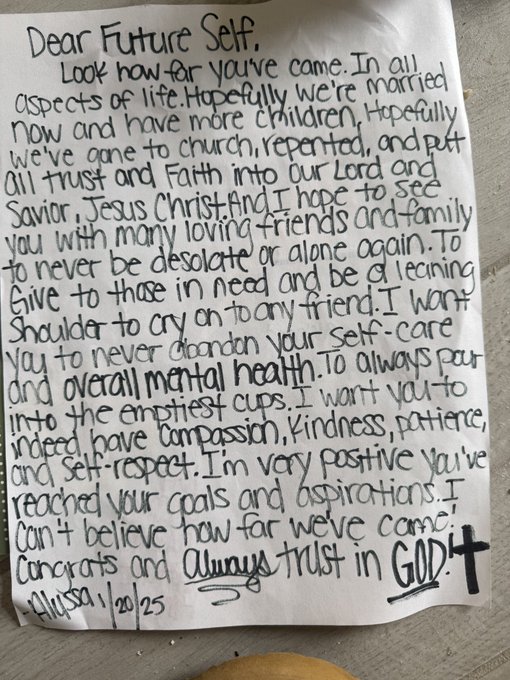 Dear Future Self,
Look how far you've came. In all
aspects of life. Hopefully we're married
now and have more children, Hopefully
we've gone to church, repented, and putt
all trust and Faith into our Lord and
Savior, Jesus Christ. And I hope to see
you with many loving friends and family
to never be desolate or alone again. To
Give to those in need and be a leaning
shoulder to cry on to any friend. I want
you to never abandon your self-care
and overall mental health. To always pour
into the emptiest cups. I want you to
indeed have Compassion, Kindness, patience,
and self-respect. I'm very positive you've
reached your goals and aspirations. I
can't believe how far we've came!
Congrats and always trust in GOD!
-Alyssa 1/20/25